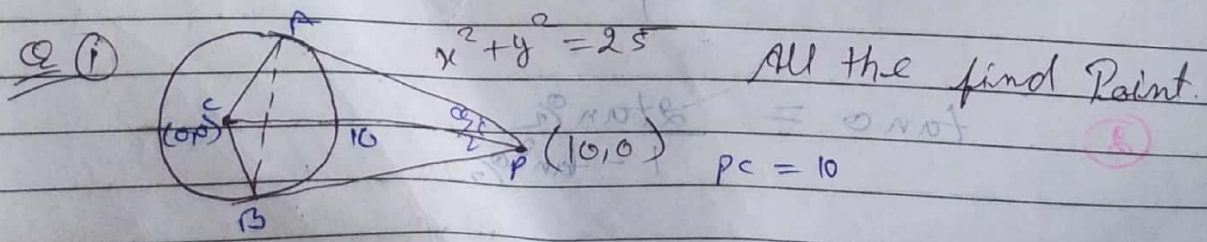 Q ① A x² + y² = 25 All the find Point.
C
(0,0) 10 P (10,0) PC = 10
B